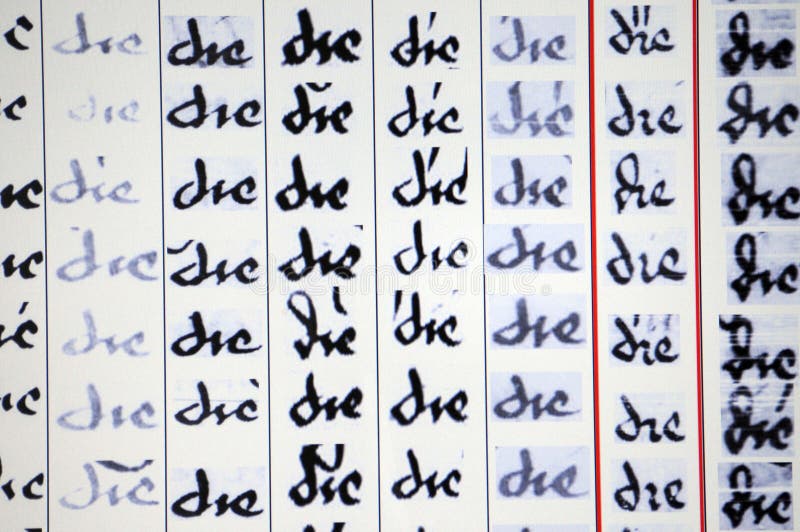 die die die die die die die
die die die die die die die
die die die die die die die
die die die die die die die
dreamstime
die die die die die die die
die die die die die die die
die die die die die die die